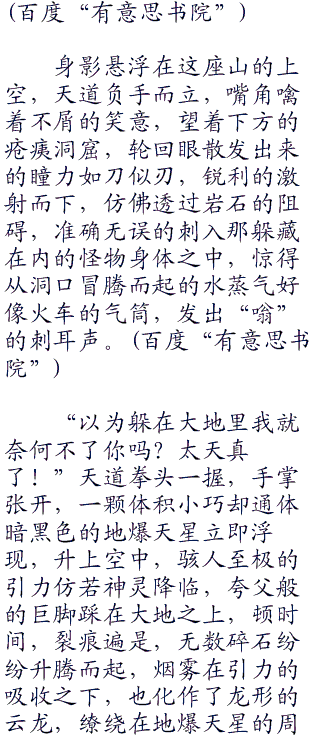 (百度“有意思书院”)
身影悬浮在这座山的上
空，天道负手而立，嘴角噙
着不屑的笑意，望着下方的
疮痍洞窟，轮回眼散发出来
的瞳力如刀似刃，锐利的激
射而下，仿佛透过岩石的阻
碍，准确无误的刺入那躲藏
在内的怪物身体之中，惊得
从洞口冒腾而起的水蒸气好
像火车的气筒，发出“嗡”
的刺耳声。(百度“有意思书
院”)
“以为躲在大地里我就
奈何不了你吗？太天真
了！”天道拳头一握，手掌
张开，一颗体积小巧却通体
暗黑色的地爆天星立即浮
现，升上空中，骇人至极的
引力仿若神灵降临，夸父般
的巨脚踩在大地之上，顿时
间，裂痕遍是，无数碎石纷
纷升腾而起，烟雾在引力的
吸收之下，也化作了龙形的
云龙，缭绕在地爆天星的周